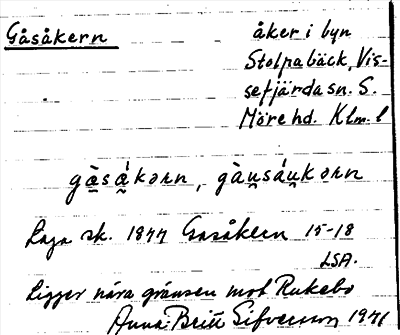 Gåsåkern
åker i byn
Stolpabäck, Vis-
sefjärda sn. S.
Möre hd. Klm. l
gàsákərn, gàu̯sáu̯kərn
Laga sk. 1877 Gasåkern 15-18
LSA.
Ligger nära gränsen mot Rukebo
Anna-Britt Sifversson 1971